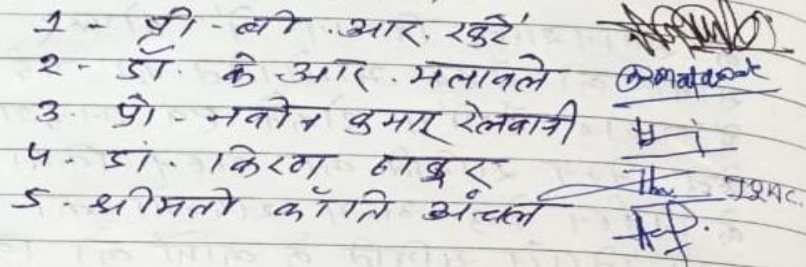 1 - प्रो - बी . आर. रखुटे
2 - डॉ. के . आर . मतावले
3 . प्रो - नवीन कुमार रेलवानी
4 - डॉ . किरण ठाकुर IQAC.
5 - श्रीमती कॉंति अंचल